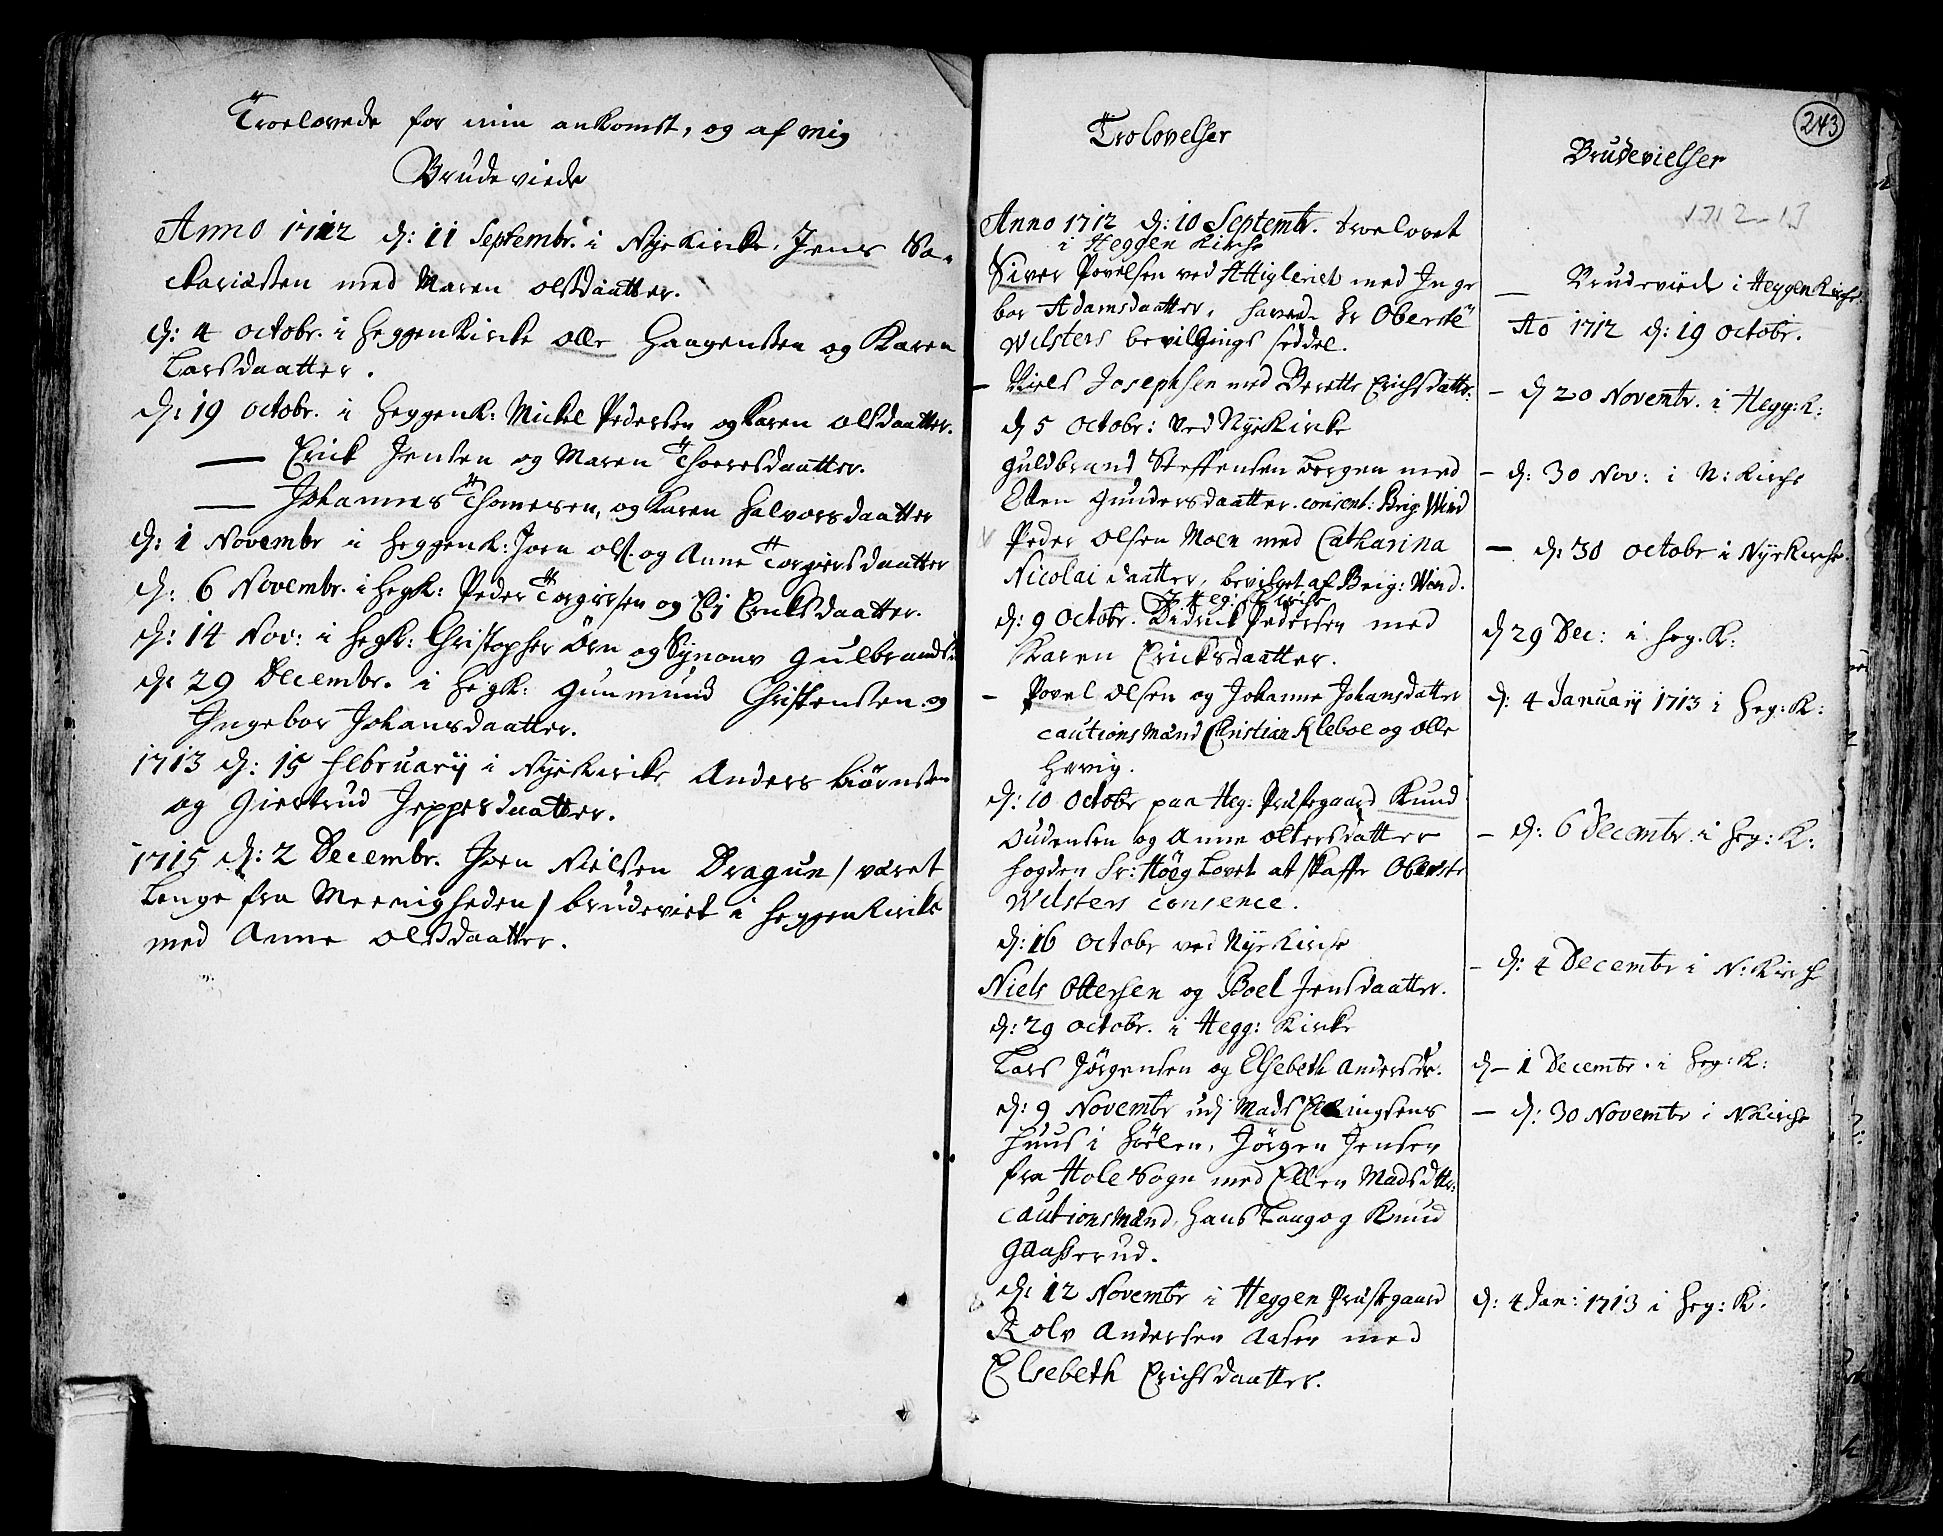 Troelovede for min ankomst, og af mig
Brudeviede
Anno 1712 d: 11 Septembr. i Nyekirke, Jens Sa-
chariæsen med Maren olsdaatter.
d: 4 octobr. i Heggenkirke olle Haagensen og Karen
Larsdaatter.
d: 19 octobr. i Heggenk: Mickel Pedersen og Karen olsdaatter.
— Erick Jensen og Maren Thoeresdaatter.
— Johannes Thomesen, og Karen Halvorsdaatter
d: 1 Novembr i Heggenk: Joen ols. og Anne Torgiersdaatter
d: 6 Novembr. i Hegk: Peder Torgiersen og Eli Ericksdaatter.
d: 14 Nov: i Hegk: Christopher Örn og Synove Gulbrandsd:
d: 29 Decembr. i Hegk: Gunmund Christensen og
Ingebor Johansdaatter.
1713 d: 15 Februarij i Nyekirke Anders Biörnsen
og Giertrud Jeppesdaatter.
1715 d: 2 Decembr. Joen Nielsen Dragun / været
lenge fra Meenigheden / brudeviet i Heggenkirke
med Anne olsdaatter.
Trolovelser
Anno 1712 d: 10 Septembr. troelovet
i Heggen Kirche
Siver Povelsen ved med Inge
bor Adamsdaatter, havde Hr Oberste
Wilsters bevilgings seddel.
— Niels Josephsen med Berette Erichsdatter.
d 5 Octobr: ved Nyekirke
Guldbrand Steffensen Bergen med
Ellen Gundersdaatter. consent: Brig: Wind
Peder olsen Moen med Catharina
Nicolai daatter, bevilget af Brig: Wind.
i Heg: Kirche
d: 9 Octobr. Didrick Pedersen med
Karen Ericksdaatter.
— Povel olsen og Johanne Johansdatter
cautions Mænd Christian Kleboe og olle
Hervig.
d: 10 octobr paa Heg: Præstegaard Knud
Oudensen og Anne oltersdatter
Hr: Höeg lovet at skaffe Oberste
Wilsters consence.
d: 16 octobr ved Nye Kirche
Niels Ottersen og Boel Jensdaatter.
d: 29 octobr. i Hegg: Kirke
Lars Jörgensen og Elsebeth Andersdr.
d: 9 Novembr udj Mads Ellingsens
huus i Hoelen, Jörgen Jensen
fra Hole Sogn med Ellen Madsdttr:
cautions Mænd, Hans Lang og Knud
Gaaserud.
d: 12 Novembr i Heggen Præstegaard
Rolv Andersen Aasen med
Elsebeth Erichsdaatter.
243
Brudevielser
1712-13
— Brudeviede i Heggen Kirche
Ao 1712 d: 19 octobr.
— d 20 Novembr. i Hegg: K:
— d: 30 Nov: i N: Kirche
— d: 30 octobr i Nye Kirche.
d 29 Dec: i Heg. K:
d: 4 Januarij 1713 i Heg: K:
— d: 6 Decembr. i Heg: K:
— d: 4 Decembr i N: Kirche
d — 1 Decembr. i Heg: K:
— d: 30 Novembr i NKirche
d: 4 Jan: 1713 i Heg: K.